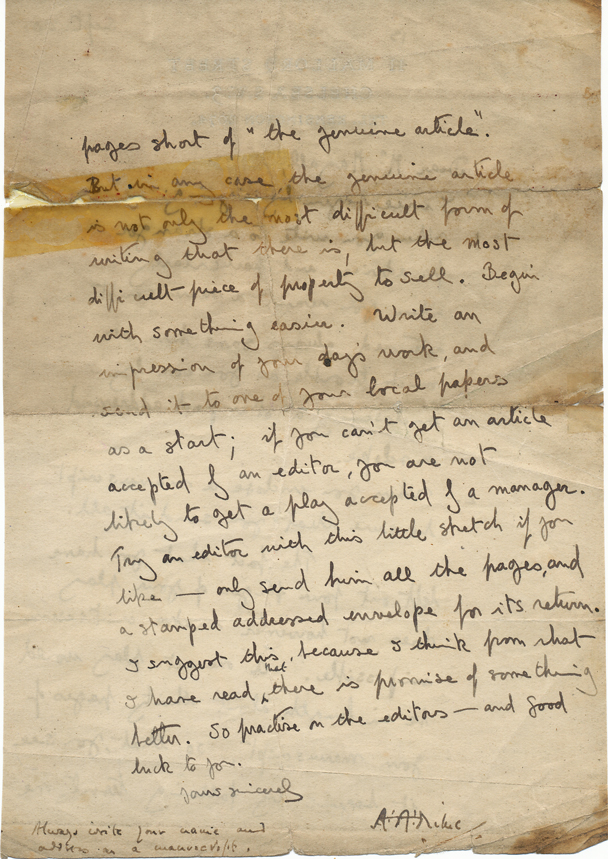 pages short of "the genuine article".
But in any case the genuine article
is not only the most difficult form of
writing that there is, but the most
difficult piece of property to sell. Begin
with something easier. Write an
impression of your day's work, and
send it to one of your local papers
as a start; if you can't get an article
accepted by an editor, you are not
likely to get a play accepted by a manager.
Try an editor with this little sketch if you
like — only send him all the pages, and
a stamped addressed envelope for its return.
I suggest this, because I think from what
I have read, that there is promise of something
better. So practise on the editors — and good
luck to you.
Yours sincerely
A. A. Milne
Always write your name and
address on a manuscript.